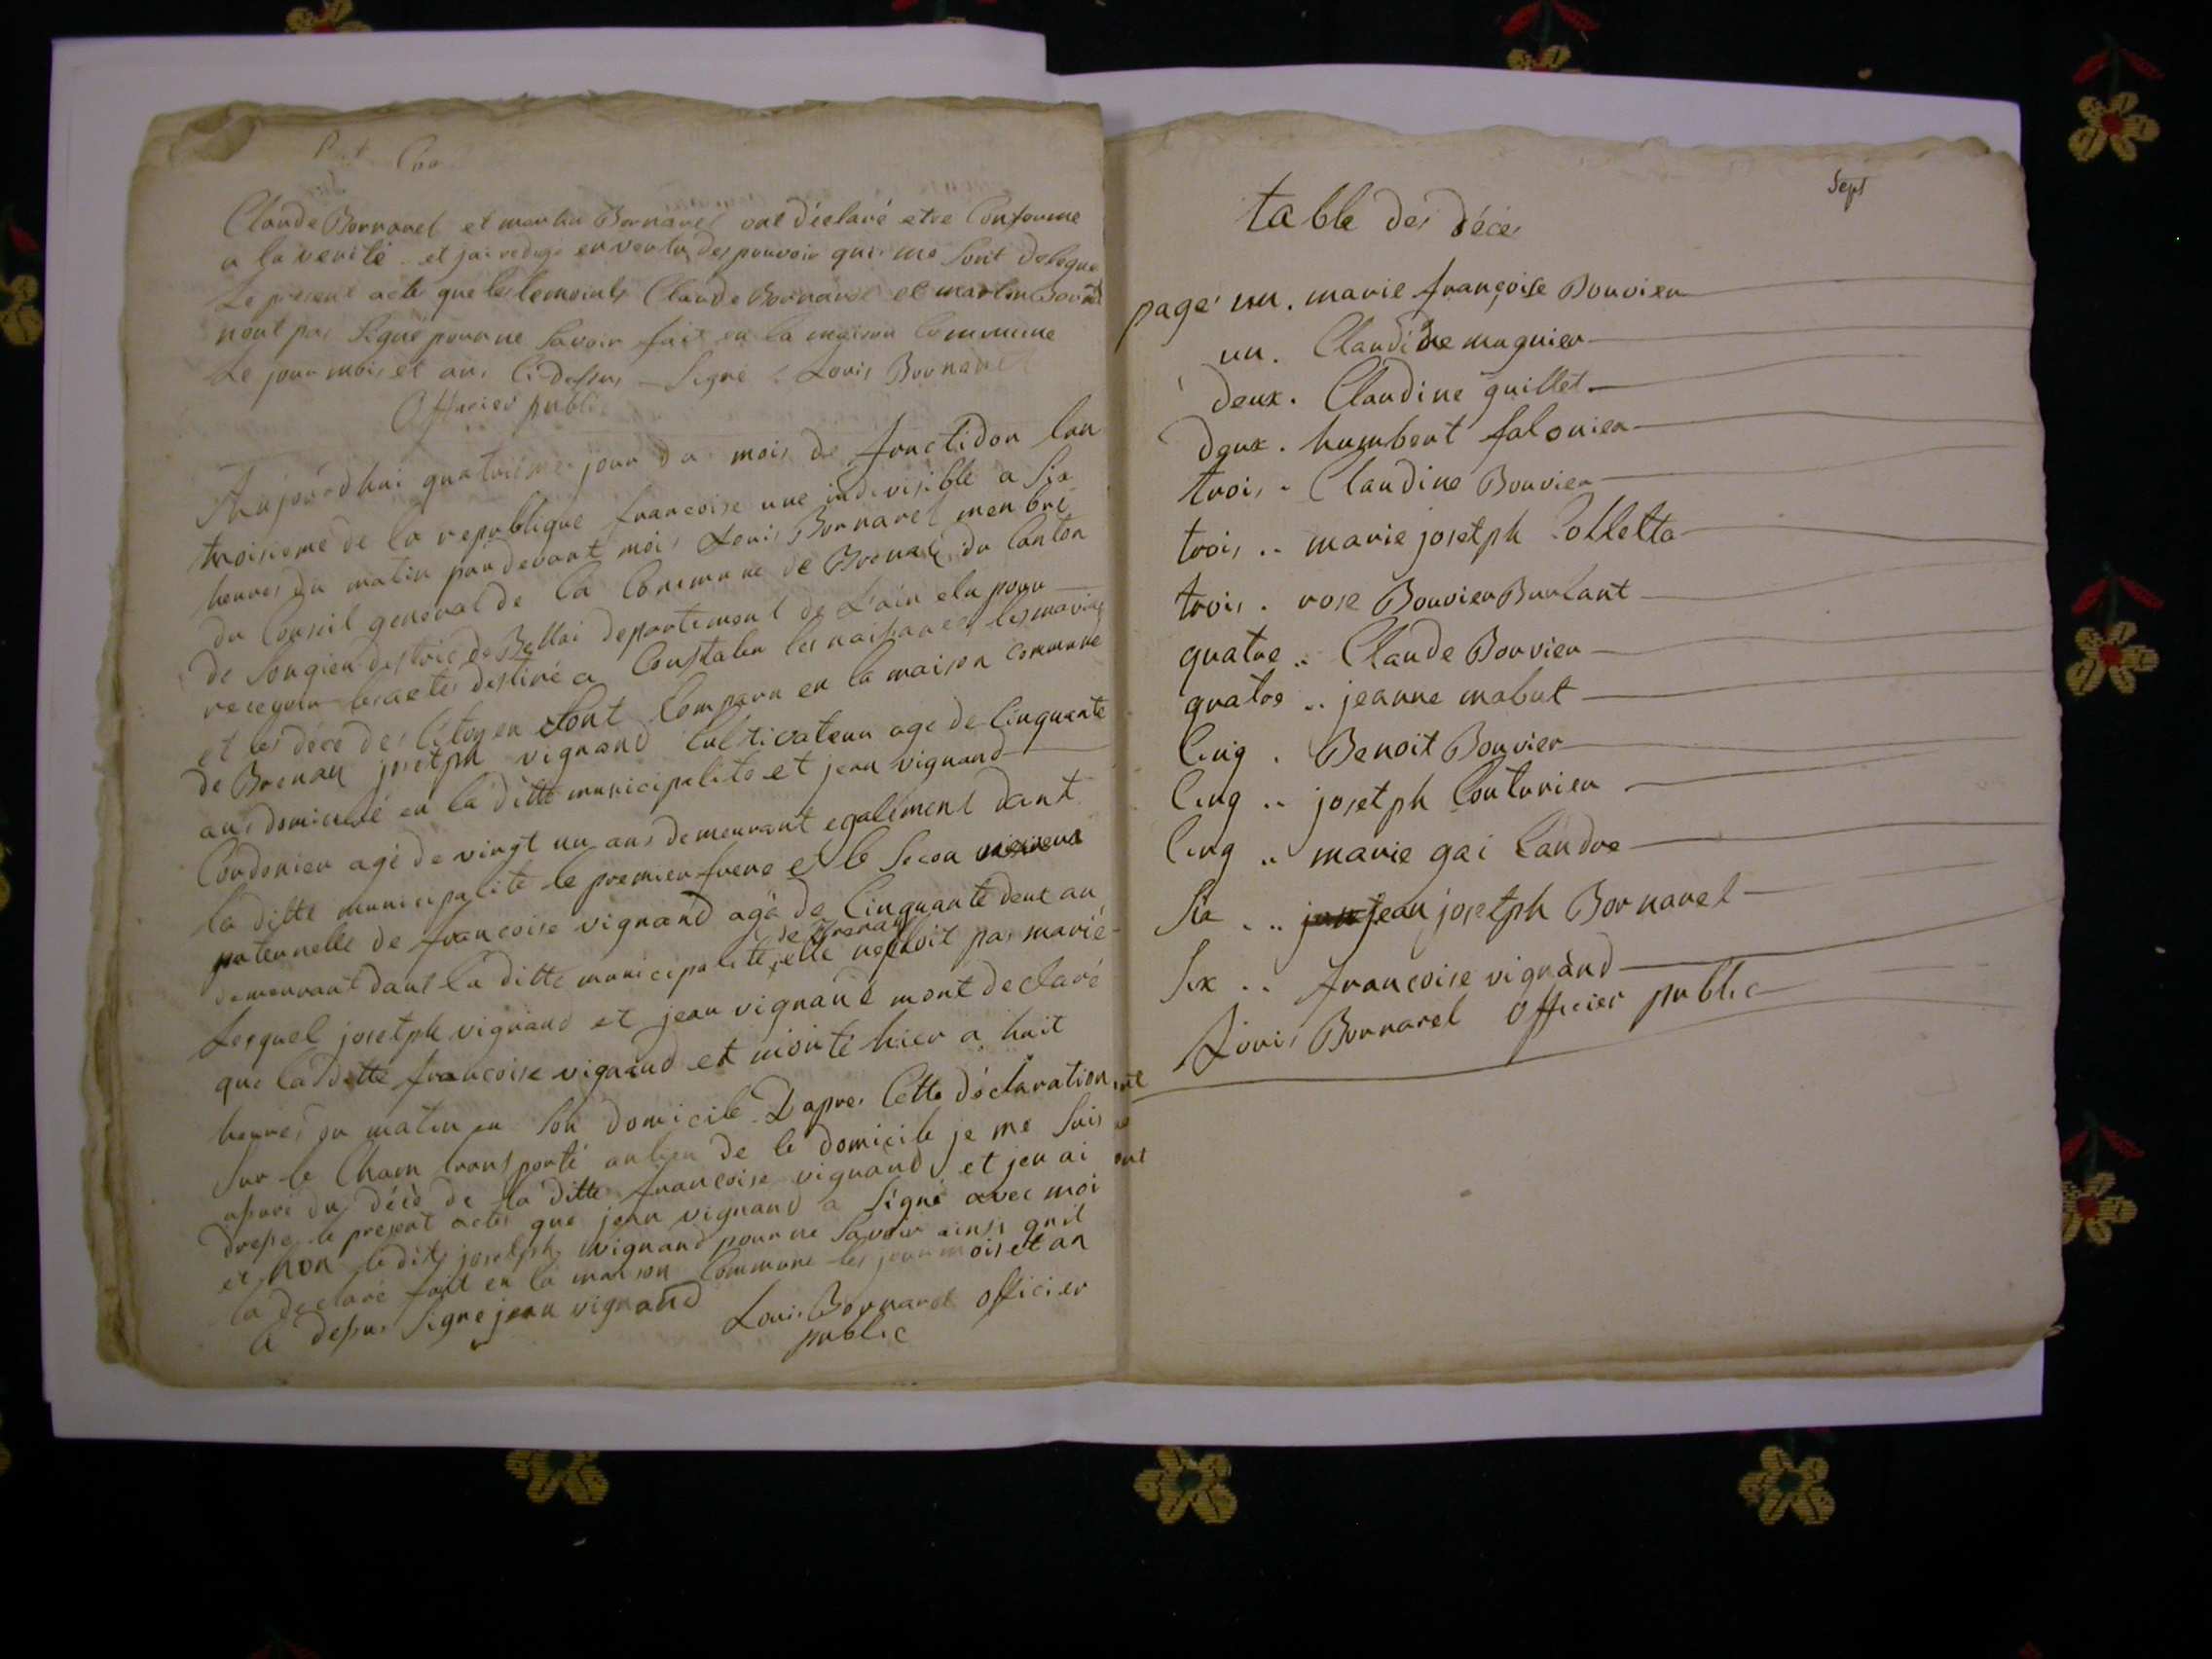 Claude Bornarel et martin Bornarel ont déclaré etre Conforme
a la verité et jai redigé en vertu des pouvoir qui me sont delegue
Le present acte que les temoints Claude Bornarel et martin Bornarel
nont pas signé pour ne savoir fait en la maison Commune
Le jour mois et ans Cidessus Signé Louis Bornarel
Officier public
Aujourdhui quatrieme jour du mois de fructidor lan
troisieme de la republique francoise une indivisible a six
heures du matin par devant moi Louis Bornarel menbre
du Conseil general de la Commune de Brenaz du Canton
de Songieu destric de Bellai departement de L'ain elu pour
recevoir les actes destiné a Constater les naisances les mariage
et les décè des Citoyen sont Comparu en la maison commune
de Brenaz josetph vignand Cultivateur age de Cinquante
ans domicilié en la ditte municipalite et jean vignand
Cordonier agé de vingt un ans demeurant egalement dant
la ditte municipalité le premier frere et le secon
paternelle de francoise vignand agé de Cinquante deux an
de Brenaz
demeurant dant la ditte municipalite elle netoit pas marié
Lesquel josetph vignand et jean vignand mont declaré
que la ditte francoise vignand et morte hier a huit
heures du matin en son domicile Dapres Cette déclaration
sur le Cham transporté au lieu de le domicile je me suis
assuré du décè de la ditte francoise vignand et jen ai
dresse le present actes que jean vignand a signé avec moi
et non le dit josetph vignand pour ne savoir ainsi quil
la declaré fait en la maison Commune les jour mois et an
Ci dessus Signe jean vignand
Louis Bornarel officier
public
Sept
table des décès
page un. marie françoise Bouvier
un. Claudine magnier
deux. Claudine guillet
deux. humbert falonier
trois. Claudine Bouvier
trois.. marie josetph Colletta
trois. rose Bouvier Burlant
quatre.. Claude Bouvier
quatre.. jeanne mabut
Cinq. Benoit Bouvier
Cinq.. josetph Couturier
Cinq.. marie gai Landre
Six... jean josetph Bornarel
Six.. francoise vignand
Louis Bornarel Officier public